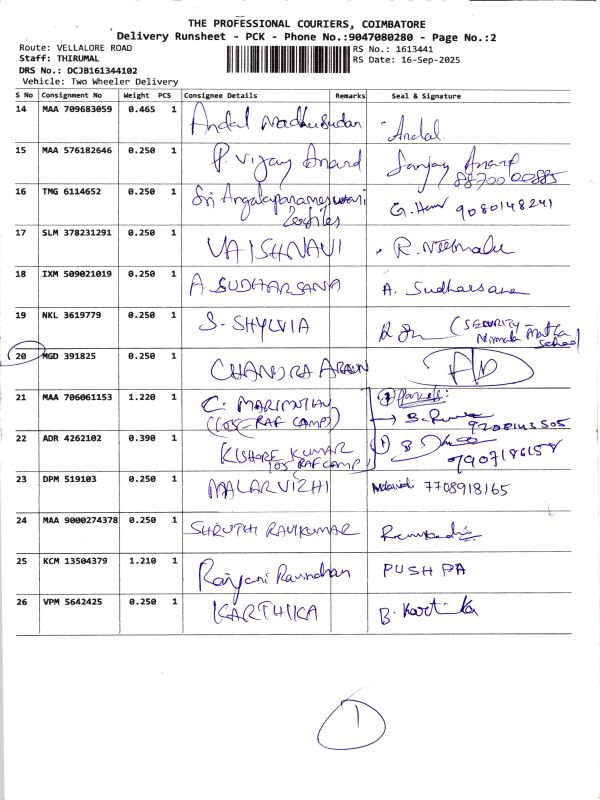 THE PROFESSIONAL COURIERS, COIMBATORE
Delivery Runsheet - PCK - Phone No.:9047080280 - Page No.:2
Route: VELLALORE ROAD RS No.: 1613441
Staff: THIRUMAL RS Date: 16-Sep-2025
DRS No.: DCJB161344102
Vehicle: Two Wheeler Delivery
S No Consignment No Weight PCS Consignee Details Remarks Seal & Signature
14 MAA 709683059 0.465 1 Andal Madhusudan Andal
15 MAA 576182646 0.250 1 P. Vijay Anand Sanjay Anand
8870000885
16 TMG 6114652 0.250 1 Sri Angalaparameswari G. 9080148241
Textiles
17 SLM 378231291 0.250 1 VAISHNAVI R. Nirmala
18 IXM 509021019 0.250 1 A SUDHARSANA A. Sudharsana
19 NKL 3619779 0.250 1 S. SHYLVIA (SECURITY
Nirmala Matha
School
20 MGD 391825 0.250 1 CHANDRA ARUN
21 MAA 706061153 1.220 1 C. MARIMUTHU Parcels:
(105-RAF CAMP) B.
9208143505
22 ADR 4262102 0.390 1 KISHORE KUMAR
105 RAF CAMP) 7907186158
23 DPM 519103 0.250 1 MALARVIZHI 7708918165
24 MAA 9000274378 0.250 1 SHRUTHI RAVIKUMAR
25 KCM 13504379 1.210 1 Ranjani Ravindhan PUSHPA
26 VPM 5642425 0.250 1 KARTHIKA B. Kartika
1